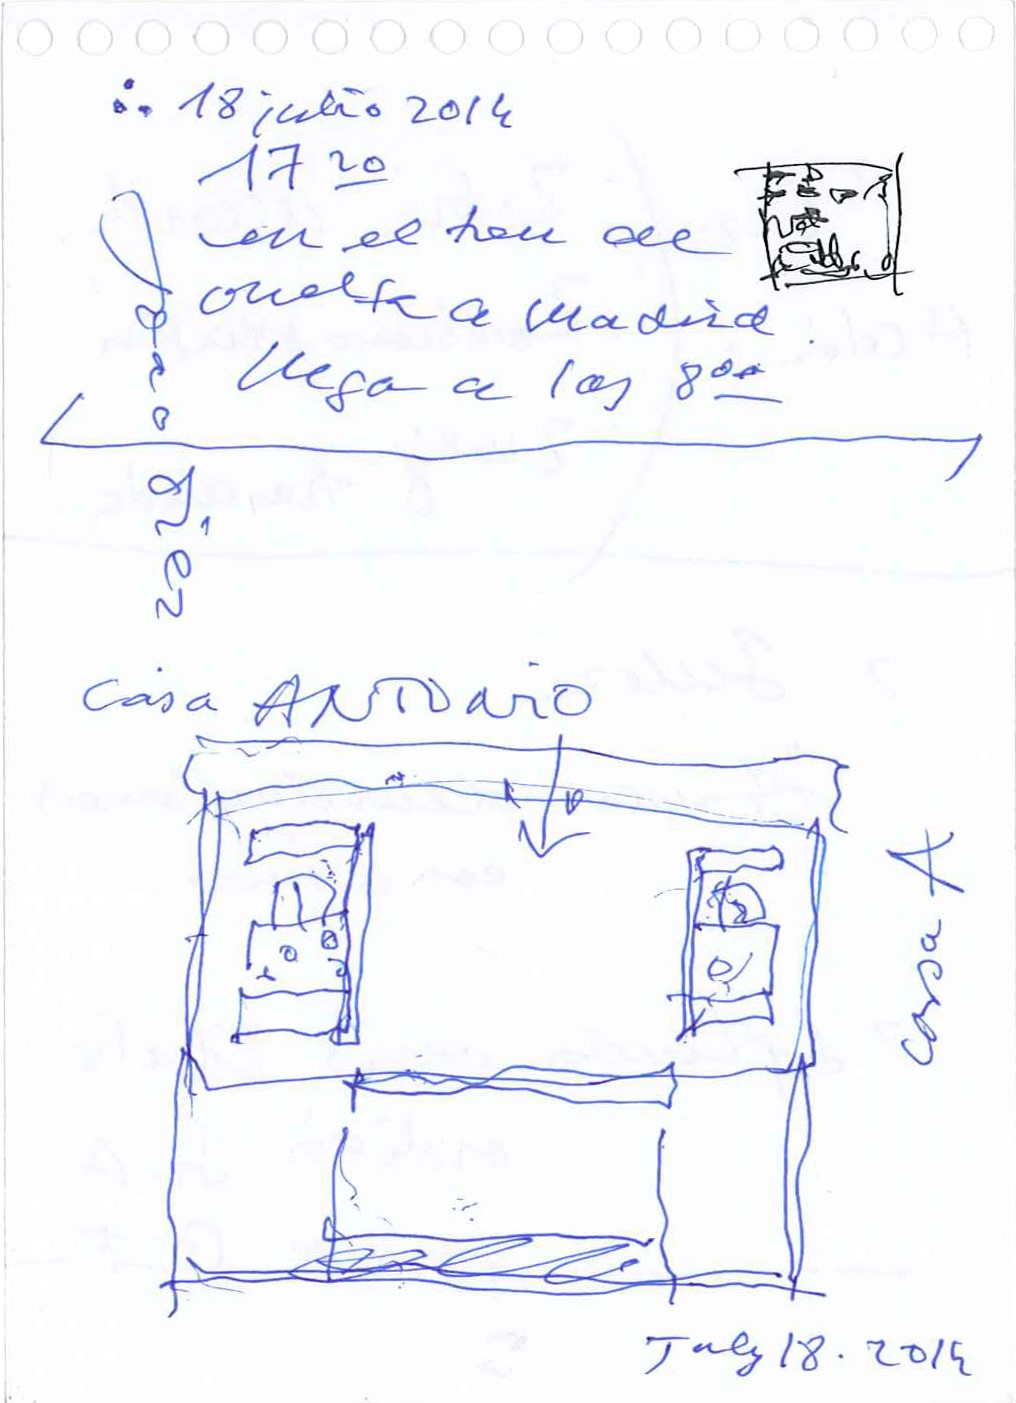 18 julio 2014
17 20
en el tren de
vuelta a Madrid
llega a las 8 00
Casa ANTONIO
Casa A
July 18. 2014